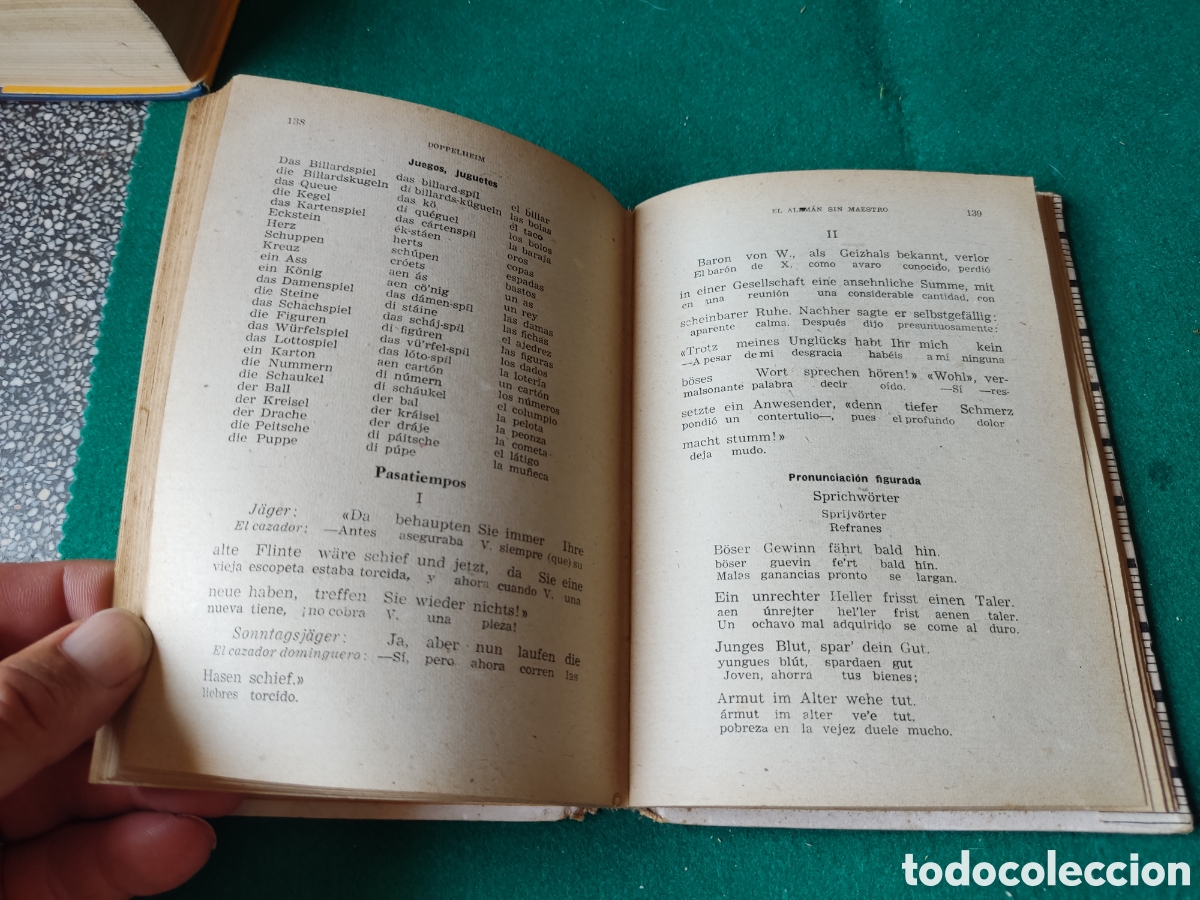 138
DOPPELHEIM
Juegos, juguetes
Das Billardspiel das billard-spíl el billar
die Billardskugeln di billards-kúgueln las bolas
das Queue das kö el taco
die Kegel di quéguel los bolos
das Kartenspiel das cártenspíl la baraja
Eckstein ék-stáen oros
Herz herts copas
Schuppen schúpen espadas
Kreuz cróets bastos
ein Ass aen ás un as
ein König aen cö'nig un rey
das Damenspiel das dámen-spíl las damas
die Steine di stáine las fichas
das Schachspiel das scháj-spíl el ajedrez
die Figuren di figúren las figuras
das Würfelspiel das vü'rfel-spíl los dados
das Lottospiel das lóto-spíl la lotería
ein Karton aen cartón un cartón
die Nummern di númern los números
die Schaukel di scháukel el columpio
der Ball der bal la pelota
der Kreisel der kráisel la peonza
der Drache der dráje la cometa
die Peitsche di páitsche el látigo
die Puppe di púpe la muñeca
Pasatiempos
I
Jäger: «Da behaupten Sie immer Ihre
El cazador: —Antes aseguraba V. siempre (que) su
alte Flinte wäre schief und jetzt, da Sie eine
vieja escopeta estaba torcida, y ahora cuando V. una
neue haben, treffen Sie wieder nichts!»
nueva tiene, ¡no cobra V. una pieza!
Sonntagsjäger: Ja, aber nun laufen die
El cazador dominguero: —Sí, pero ahora corren las
Hasen schief.»
liebres torcido.
EL ALEMÁN SIN MAESTRO 139
II
Baron von W., als Geizhals bekannt, verlor
El barón de X. como avaro conocido, perdió
in einer Gesellschaft eine ansehnliche Summe, mit
en una reunión una considerable cantidad, con
scheinbarer Ruhe. Nachher sagte er selbstgefällig:
aparente calma. Después dijo presuntuosamente:
«Trotz meines Unglücks habt Ihr mich kein
—A pesar de mi desgracia habéis a mí ninguna
böses Wort sprechen hören!» «Wohl», ver-
malsonante palabra decir oído. —Sí —res-
setzte ein Anwesender, «denn tiefer Schmerz
pondió un contertulio—, pues el profundo dolor
macht stumm!»
deja mudo.
Pronunciación figurada
Sprichwörter
Sprijvörter
Refranes
Böser Gewinn fährt bald hin.
böser guevin fe'rt bald hín.
Malas ganancias pronto se largan.
Ein unrechter Heller frisst einen Taler.
aen únrejter hel'ler frist aenen taler.
Un ochavo mal adquirido se come al duro.
Junges Blut, spar' dein Gut.
yungues blút, spardaen gut
Joven, ahorra tus bienes;
Armut im Alter wehe tut.
ármut im alter ve'e tut.
pobreza en la vejez duele mucho.
todocoleccion